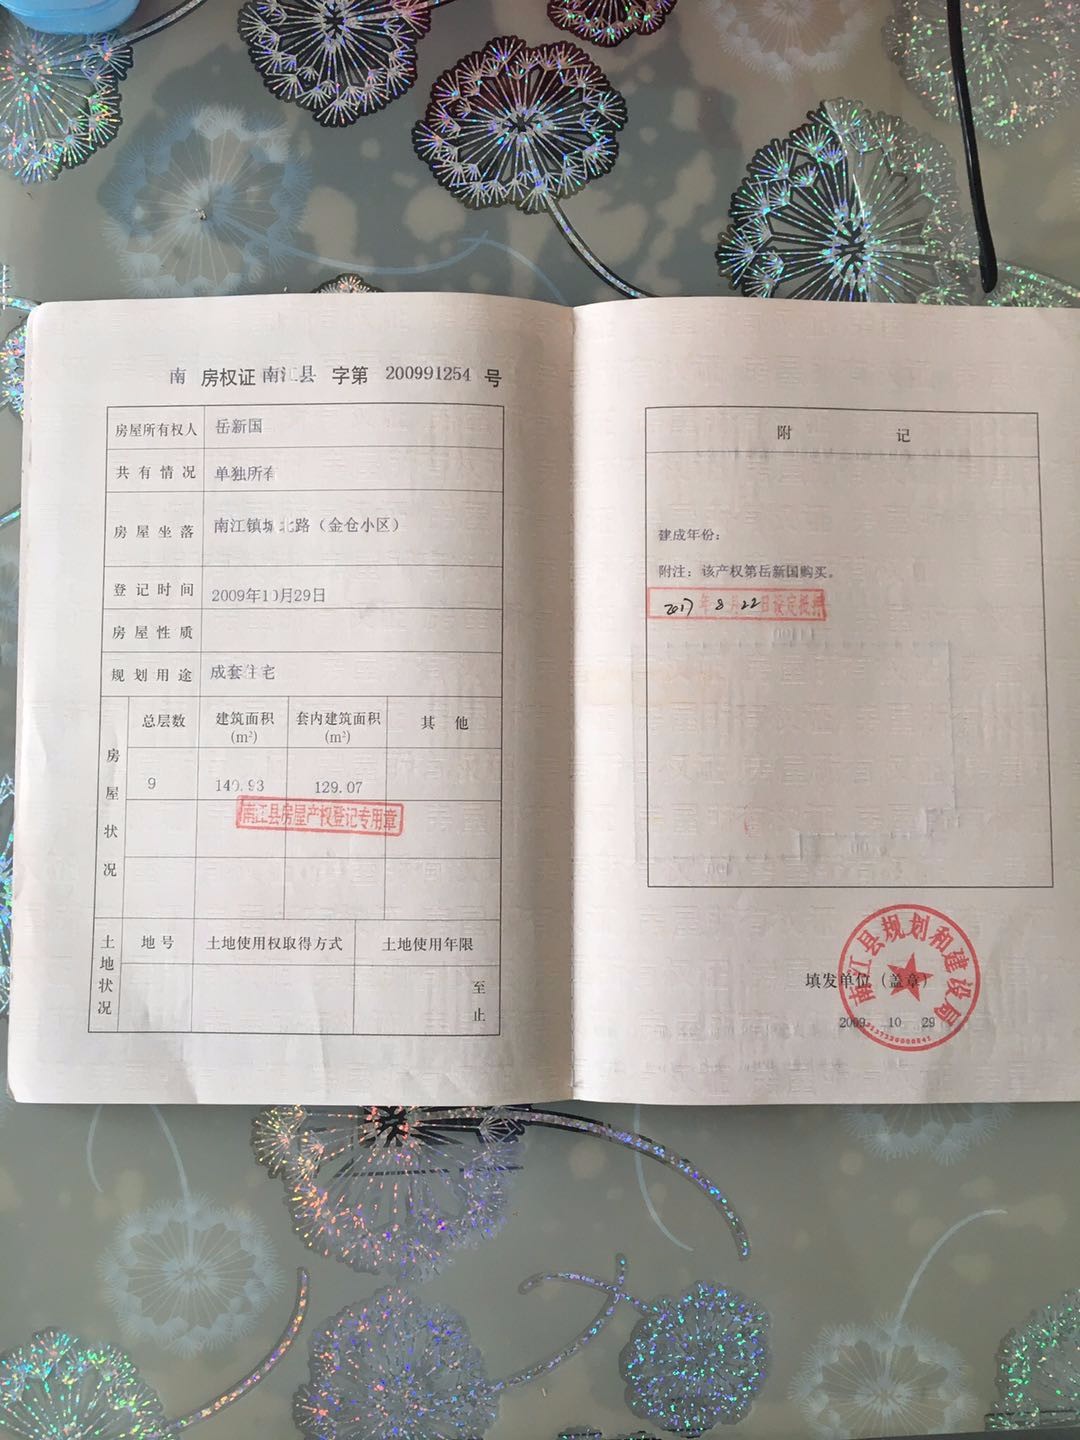 南 房权证 南江县 字第 200991254 号
房屋所有权人 岳新国
共有情况 单独所有
房屋坐落 南江镇城北路（金仓小区）
登记时间 2009年10月29日
房屋性质
规划用途 成套住宅
房屋状况
总层数 建筑面积(m²) 套内建筑面积(m²) 其他
9 140.93 129.07
南江县房屋产权登记专用章
土地状况
地号 土地使用权取得方式 土地使用年限
至
止
附 记
建成年份：
附注：该产权第岳新国购买。
2017年8月22日设定抵押
南江县规划和建设局
填发单位（盖章）
2009 10 29